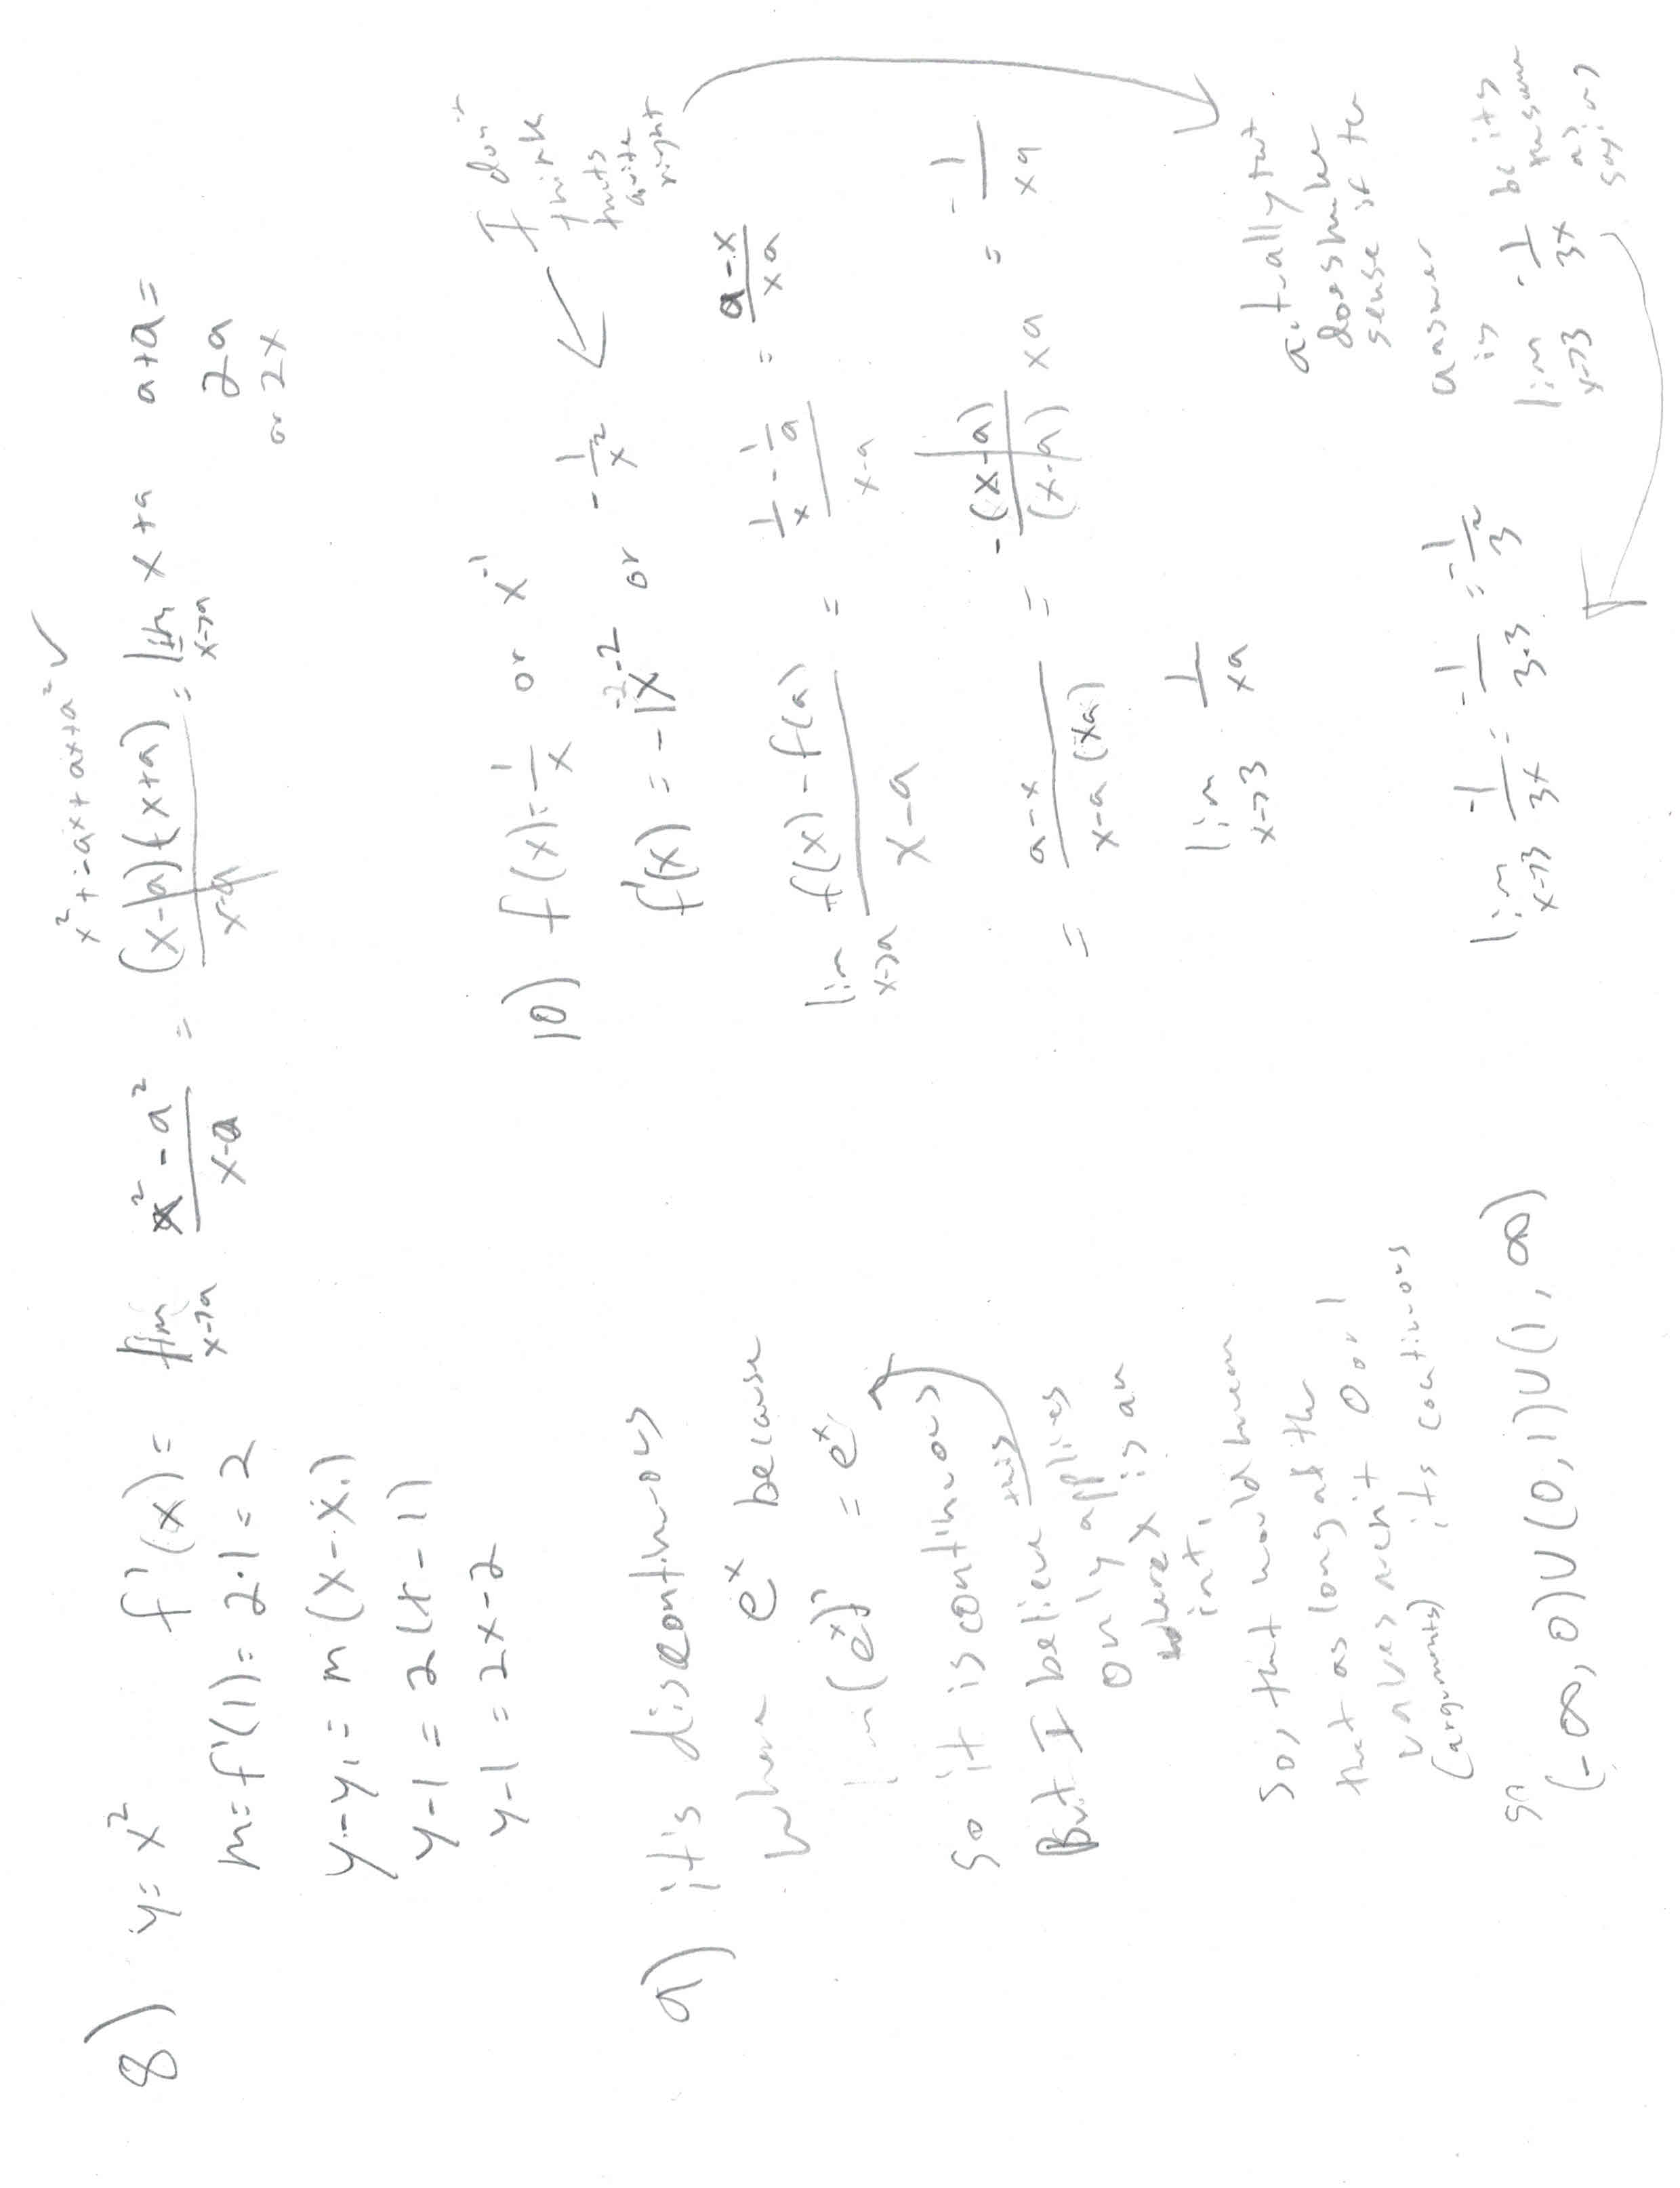 8) y = x² f'(x) = lim x→a (x² - a²)/(x-a) = (x-a)(x+a)/(x-a) = lim x→a x+a a+a =
x² + -ax + ax + a² ✓
2a
or 2x
m = f'(1) = 2·1 = 2
y-y₁ = m(x-x₁)
y-1 = 2(x-1)
y-1 = 2x-2
9) it's discontinuous
where eˣ because
ln(eˣ) = eˣ
so it is continuous
But I believe this
only applies
where x is an
int.
so, that would mean
that as long as the
values aren't 0 or 1
(arguments) it's continuous
so
(-∞, 0)∪(0,1)∪(1,∞)
10) f(x) = 1/x or x⁻¹
f'(x) = -1x⁻² or -1/x²
I don't
think
thats
quite
right
lim x→a (f(x) - f(a))/(x-a) = (1/x - 1/a)/(x-a) = (a-x)/(xa)
= (a-x)/(x-a (xa)) = -(x-a)/(x-a) xa = -1/(xa)
lim x→3 1/(xa)
actually that
does make
sense if the
answer
is
lim x→3 -1/(3x) bc it's
the same
as
saying
lim x→3 -1/(3x) = -1/(3·3) = -1/3²